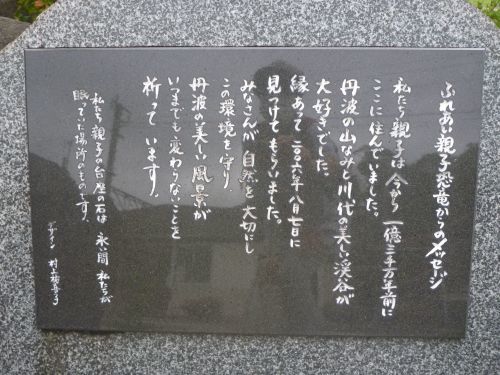 ふれあい親子恐竜からのメッセージ
私たち親子は今から一億三千万年前に
ここに住んでいました。
丹波の山なみと川代の美しい渓谷が
大好きでした。
縁あって二〇〇六年八月七日に
見つけてもらいました。
みなさんが自然を大切にし
この環境を守り、
丹波の美しい風景が
いつまでも変わらないことを
祈っています。
私たち親子の台座の石は永い間私たちが
眠っていた場所のものです。
デザイン 村上